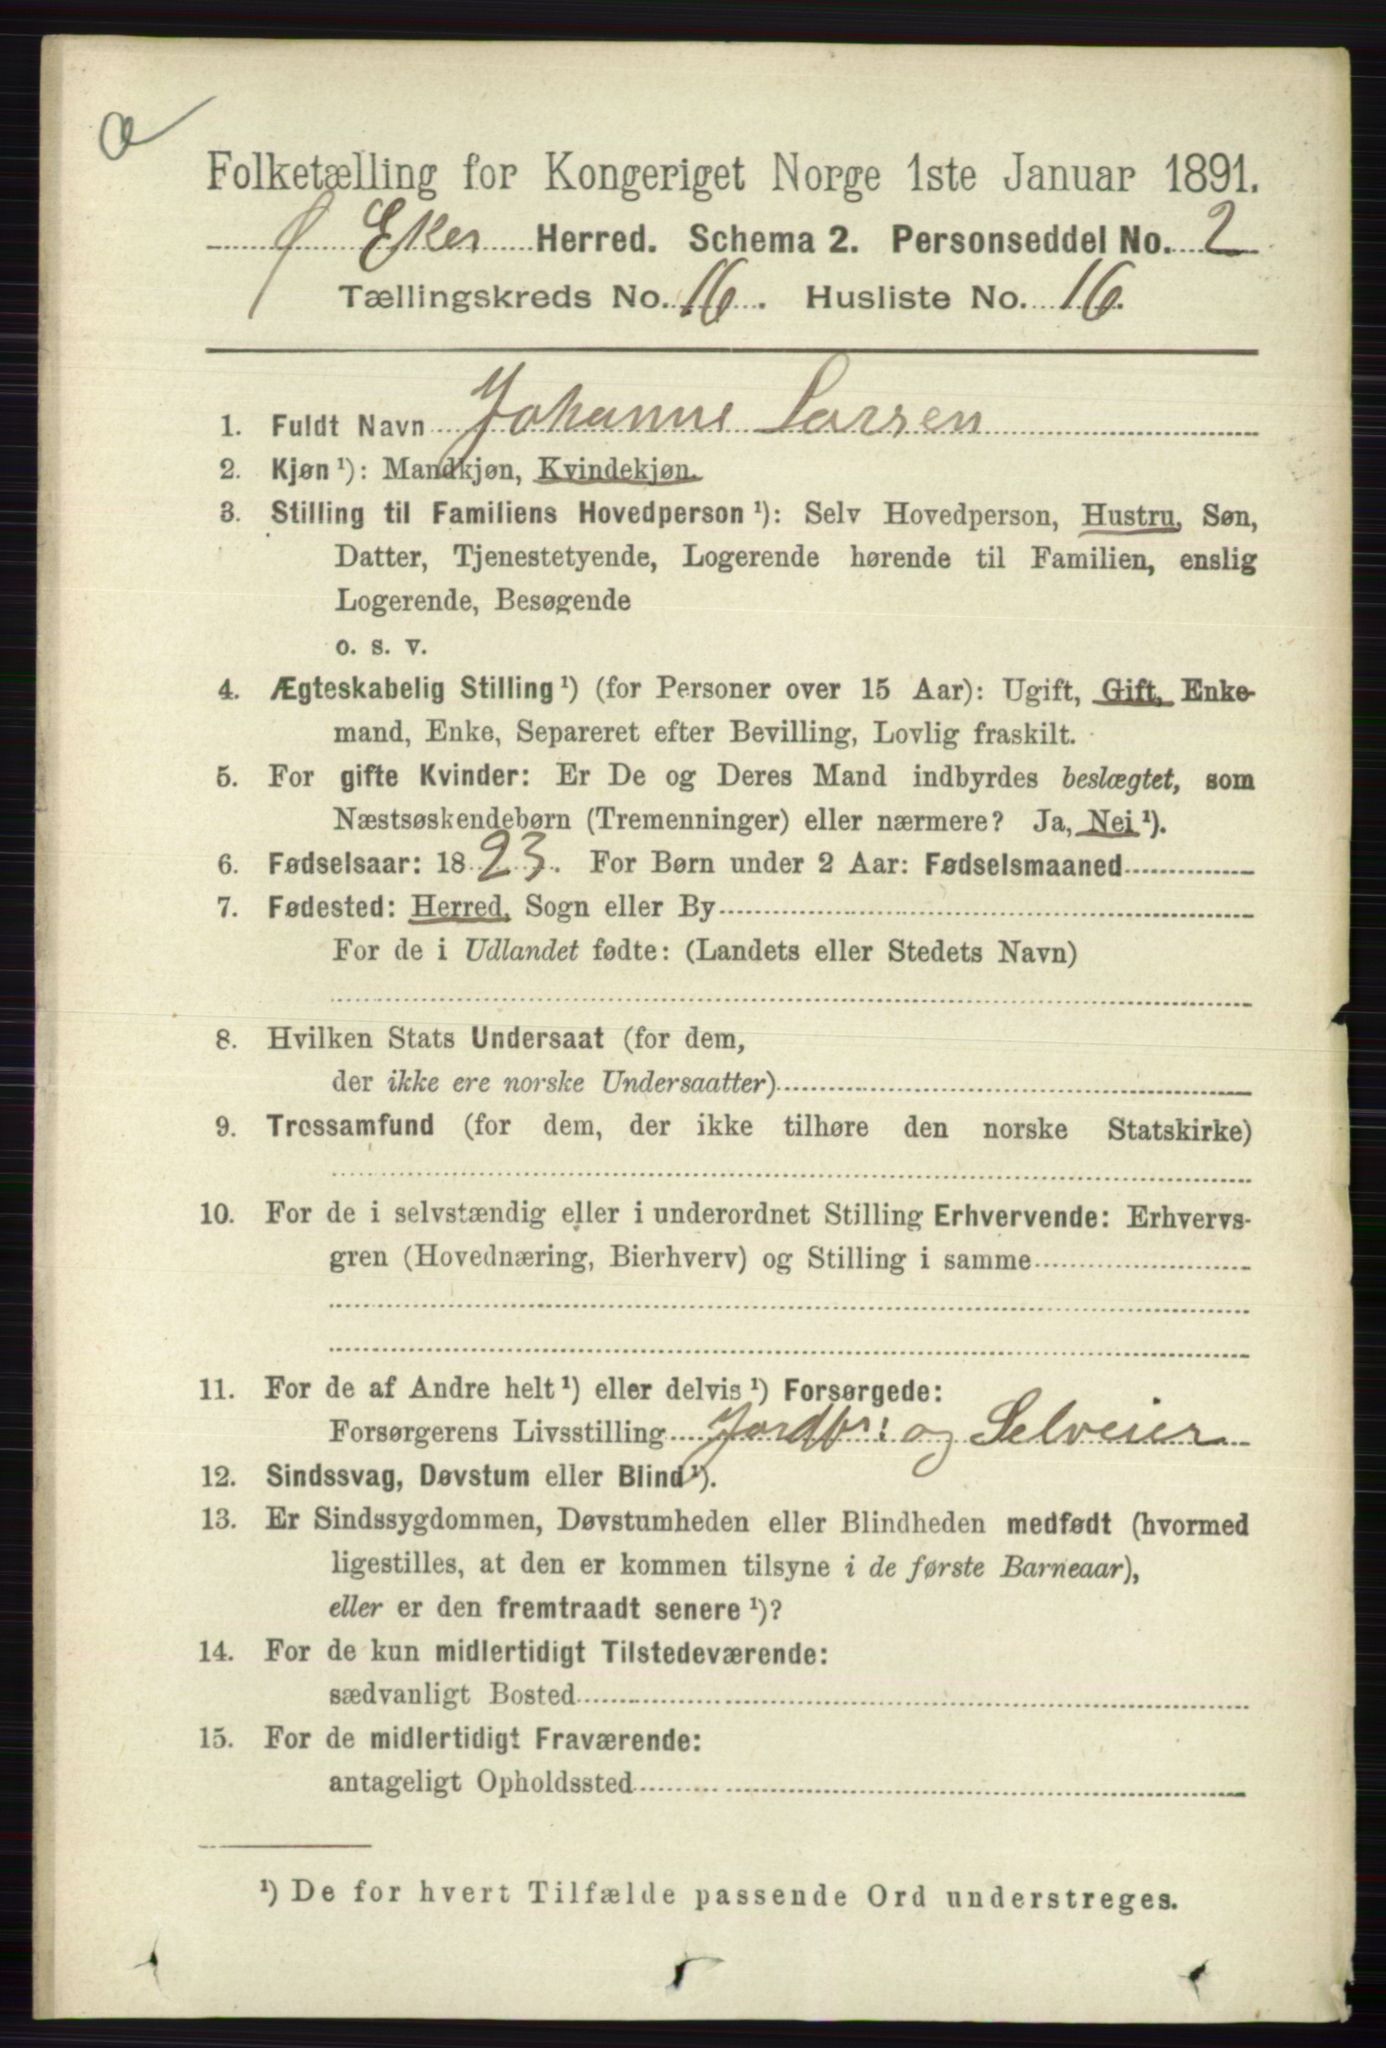 Œ
Folketælling for Kongeriget Norge 1ste Januar 1891.
Ø Eker Herred. Schema 2. Personseddel No. 2
Tællingskreds No. 16. Husliste No. 16.
1. Fuldt Navn Johanne Larsen
2. Kjøn ¹): Mandkjøn, Kvindekjøn.
3. Stilling til Familiens Hovedperson ¹): Selv Hovedperson, Hustru, Søn,
Datter, Tjenestetyende, Logerende hørende til Familien, enslig
Logerende, Besøgende
o. s. v.
4. Ægteskabelig Stilling ¹) (for Personer over 15 Aar): Ugift, Gift, Enke-
mand, Enke, Separeret efter Bevilling, Lovlig fraskilt.
5. For gifte Kvinder: Er De og Deres Mand indbyrdes beslægtet, som
Næstsøskendebørn (Tremenninger) eller nærmere? Ja, Nei ¹).
6. Fødselsaar: 1823. For Børn under 2 Aar: Fødselsmaaned
7. Fødested: Herred, Sogn eller By
For de i Udlandet fødte: (Landets eller Stedets Navn)
8. Hvilken Stats Undersaat (for dem,
der ikke ere norske Undersaatter)
9. Trossamfund (for dem, der ikke tilhøre den norske Statskirke)
10. For de i selvstændig eller i underordnet Stilling Erhvervende: Erhvervs-
gren (Hovednæring, Bierhverv) og Stilling i samme
11. For de af Andre helt ¹) eller delvis ¹) Forsørgede:
Forsørgerens Livsstilling Jordbr: og Selveier
12. Sindssvag, Døvstum eller Blind ¹).
13. Er Sindssygdommen, Døvstumheden eller Blindheden medfødt (hvormed
ligestilles, at den er kommen tilsyne i de første Barneaar),
eller er den fremtraadt senere ¹)?
14. For de kun midlertidigt Tilstedeværende:
sædvanligt Bosted
15. For de midlertidigt Fraværende:
antageligt Opholdssted
¹) De for hvert Tilfælde passende Ord understreges.